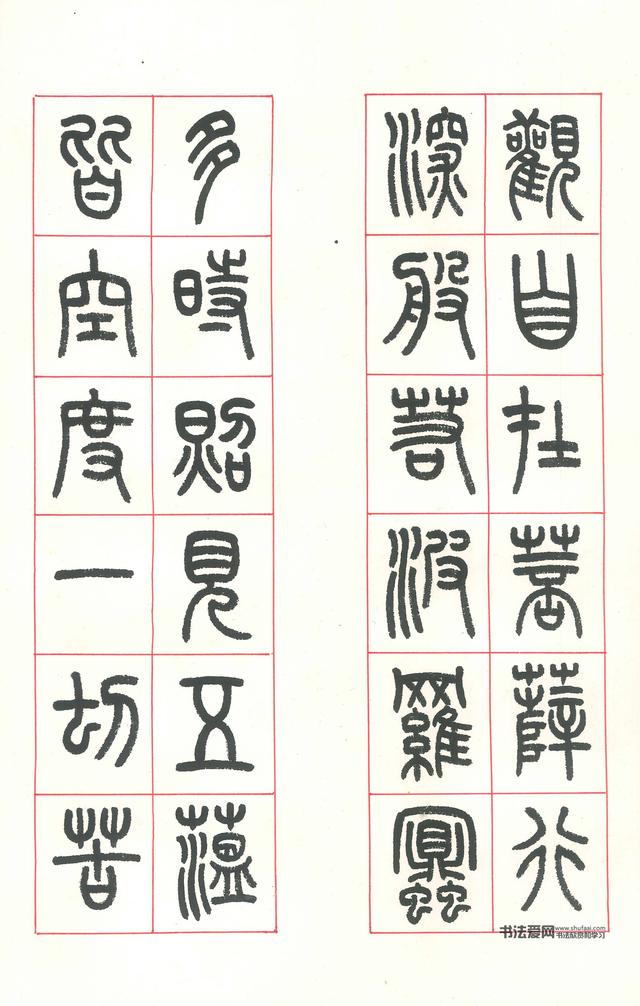 觀自在菩薩行
深般若波羅蜜
多時照見五薀
皆空度一切苦
书法爱网 www.shufaai.com
书法欣赏和学习